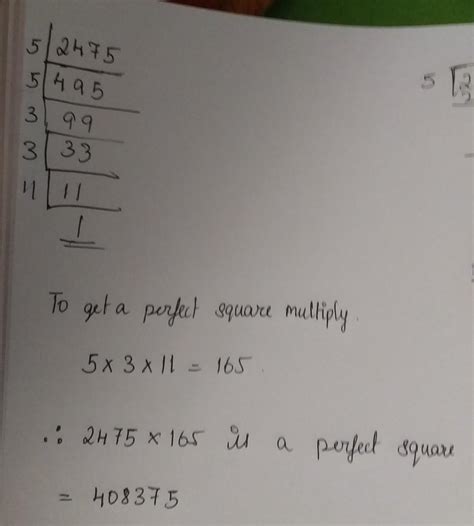 5 | 2475
5 | 495
3 | 99
3 | 33
11 | 11
1
5
To get a perfect square multiply.
5 x 3 x 11 = 165.
∴ 2475 x 165 is a perfect square
= 408375